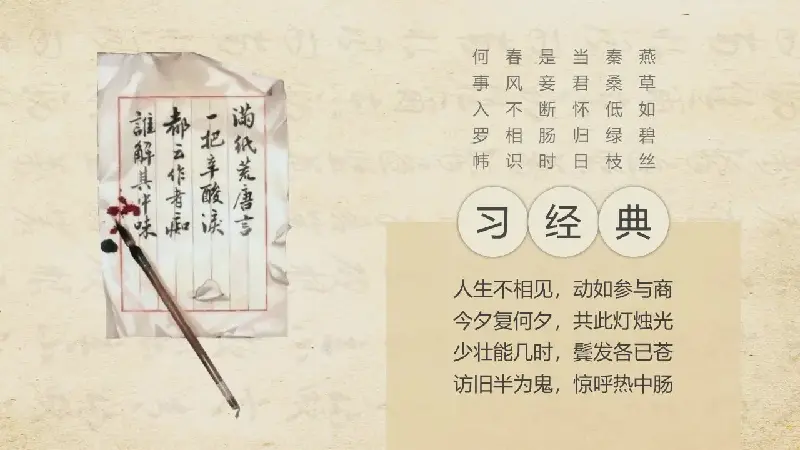 滿紙荒唐言
一把辛酸淚
都云作者痴
誰解其中味
燕草如碧丝
秦桑低绿枝
当君怀归日
是妾断肠时
春风不相识
何事入罗帏
习经典
人生不相见，动如参与商
今夕复何夕，共此灯烛光
少壮能几时，鬓发各已苍
访旧半为鬼，惊呼热中肠